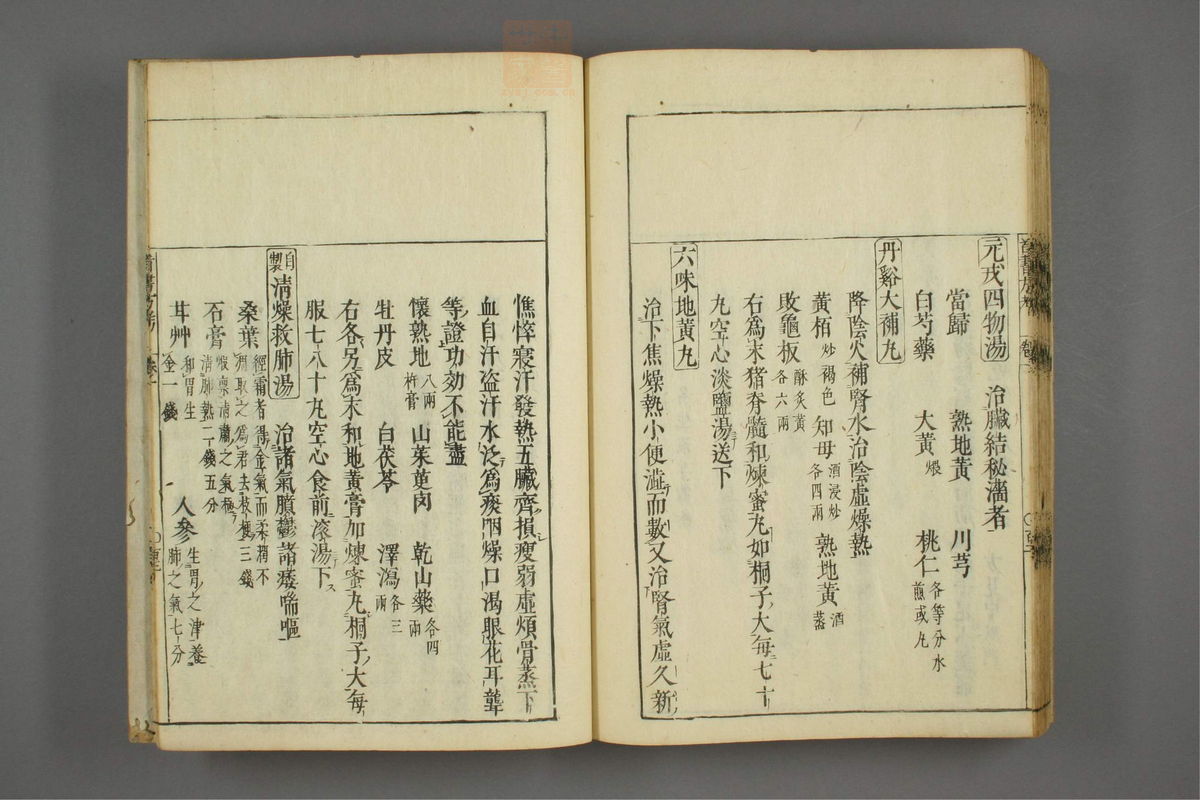 元戎四物湯　治臟結秘濇者
當歸　熟地黃　川芎
白芍藥　大黃煨　桃仁各等分水煎或丸
丹谿大補丸
降陰火補腎水治陰虛燥熱
黃栢炒褐色　知母酒浸炒各四兩　熟地黃酒蒸
敗龜板酥炙黃各六兩
右爲末猪脊髓和煉蜜丸如桐子大每七十
九空心淡鹽湯送下
六味地黃丸
治下焦燥熱小便澁而數又治腎氣虛久新
憔悴寢汗發熱五臟齊損瘦弱虛煩骨蒸下
血自汗盜汗水泛爲痰咽燥口渴眼花耳聾
等證功効不能盡
懷熟地八兩杵膏　山茱萸肉　乾山藥各四兩
牡丹皮　白茯苓　澤瀉各三兩
右各另爲末和地黃膏加煉蜜丸桐子大每
服七八十丸空心食前滚湯下
自製清燥救肺湯　治諸氣膹鬱諸痿喘嘔
桑葉經霜者得金氣而柔潤不凋取之爲君去枝梗三錢
石膏稟清肅之氣極清肺熱二錢五分　人參生胃之津養肺之氣七分
甘艸和胃生金一錢